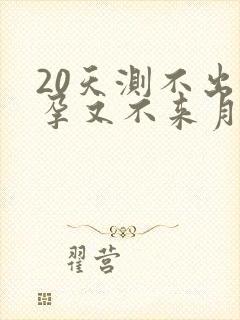 20天测不出
孕又不来月
翟营